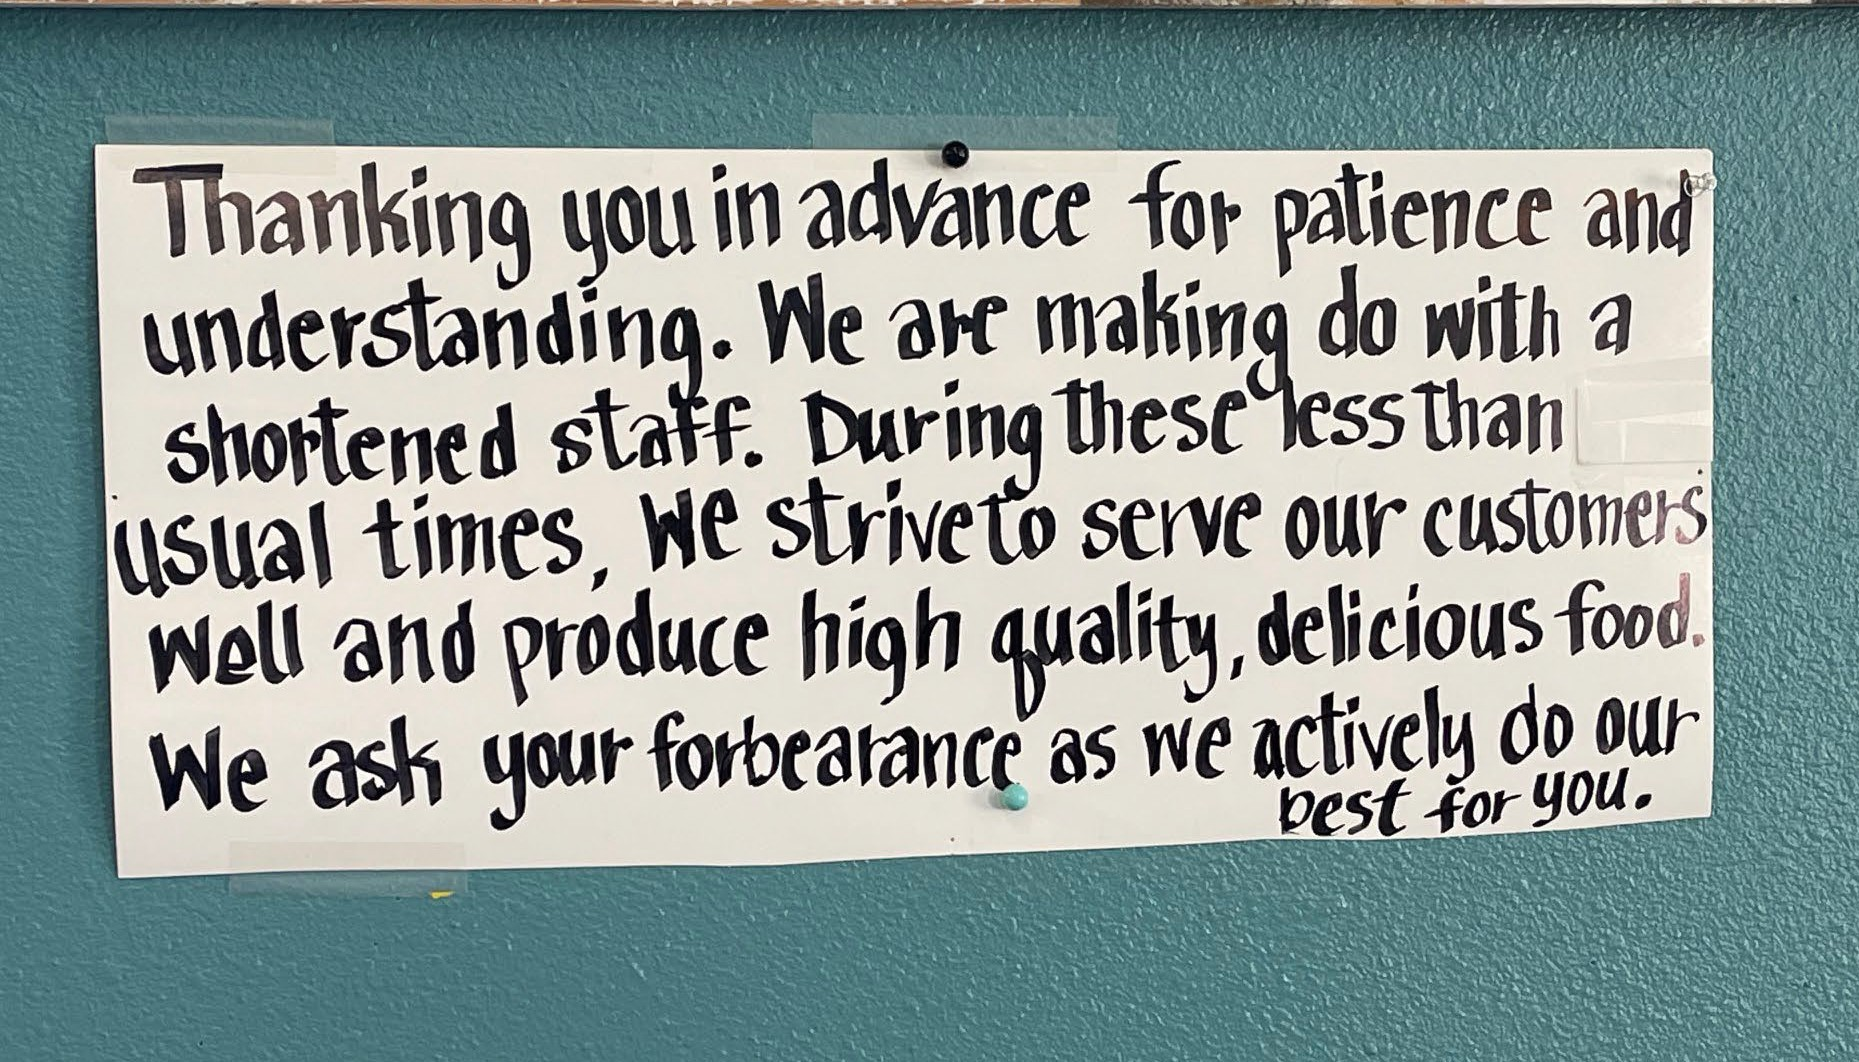 Thanking you in advance for patience and
understanding. We are making do with a
shortened staff. During these less than
usual times, we strive to serve our customers
well and produce high quality, delicious food.
We ask your forbearance as we actively do our
best for you.